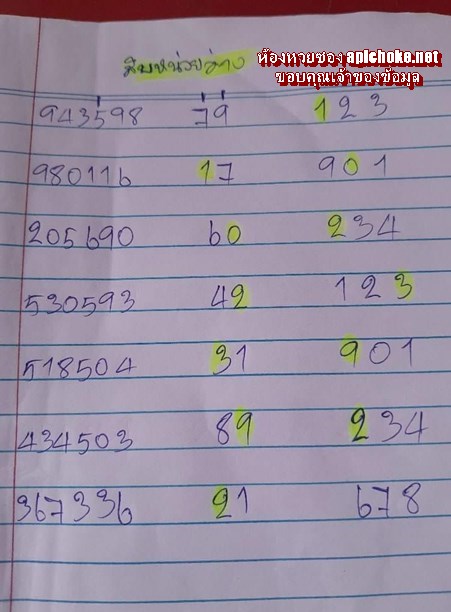 ห้องหวยซอง aplchoke.net
ขอบคุณเจ้าของข้อมูล
สิบหน่วยล่าง
943598 79 123
980116 17 901
205690 60 234
530593 42 123
518504 31 901
434503 89 234
367336 21 678